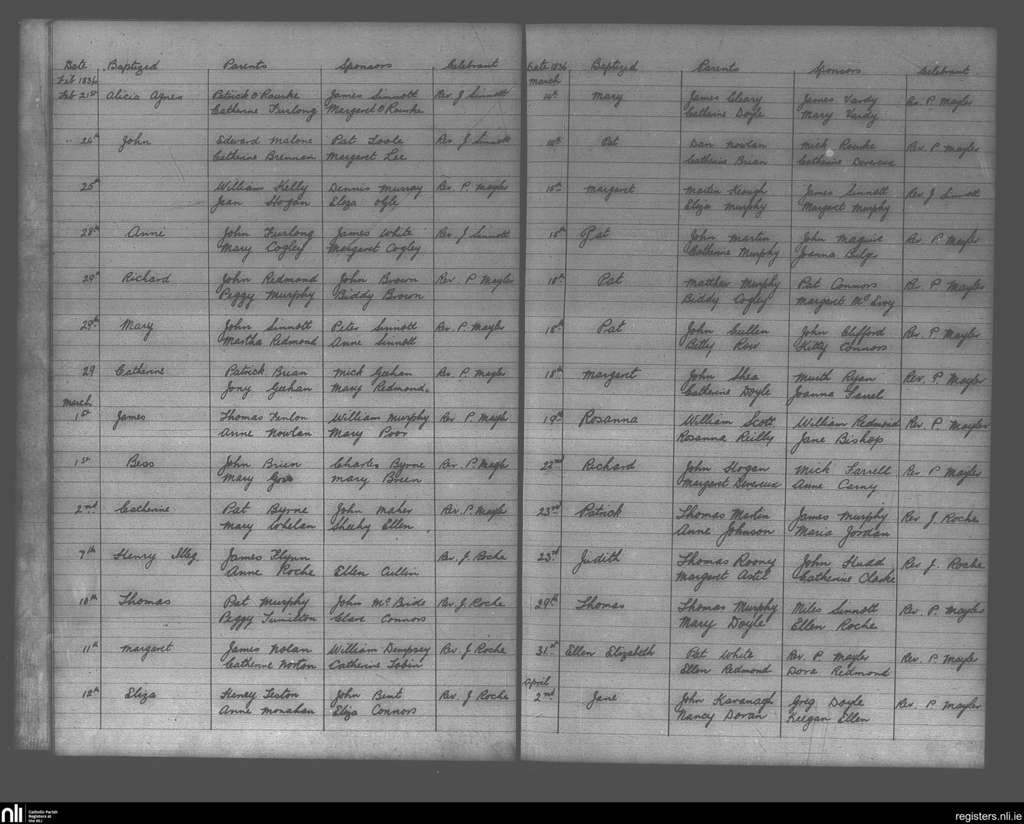 Date Baptized Parents Sponsors Celebrant
Feb 1836
Feb 21st Alicia Agnes Patrick O Rourke James Sinnott Rev J Sinnott
Catherine Furlong Margaret O Rourke
" 24th John Edward Malone Pat Toole Rev J Sinnott
Catherine Brennan Margaret Lee
25th William Kelly Dennis Murray Rev. P. Mayler
Jean Hogan Eliza Ogle
28th Anne John Furlong James White Rev J Sinnott
Mary Cogley Margaret Cogley
29th Richard John Redmond John Brown Rev P Mayler
Peggy Murphy Biddy Brown
29th Mary John Sinnott Peter Sinnott Rev P. Mayler
Martha Redmond Anne Sinnott
29 Catherine Patrick Brian Mick Geehan Rev. P. Mayler
Jony Geehan Mary Redmond
March
1st James Thomas Fenlon William Murphy Rev P
Anne Nowlan Mary Poor
1st Bess John Brien Charles Byrne Rev. P.
Mary Mary Brien
2nd Catherine Pat Byrne John Maher Rev P
Mary Whelan Sheehy Ellen
7th Henry Illeg James Flynn Rev. J. Roche
Anne Roche Ellen Cullin
10th Thomas Pat Murphy John McBride Rev J. Roche
Peggy Clare Connors
11th Margaret James Nolan William Dempsey Rev J Roche
Catherine Norton Catherine Tobin
12th Eliza Henry John Bent Rev. J Roche
Anne Monahan Eliza Connors
Date 1836 Baptized Parents Sponsors Celebrant
March
14th Mary James Cleary James Vardy Rev. P. Mayler
Catherine Doyle Mary Vardy
14th Pat Dan Nowlan Mick Rourke Rev. P. Mayler
Catherine Brian Catherine Devereux
15th Margaret Martin Keough James Sinnott Rev J Sinnott
Eliza Murphy Margaret Murphy
15th Pat John Martin John Maguire Rev. P. Mayler
Catherine Murphy Joanna Bulger
18th Pat Matthew Murphy Pat Connors Rev. P. Mayler
Biddy Cogley Margaret
18th Pat John Cullen John Clifford Rev. P Mayler
Betty Row Kitty Connors
18th Margaret John Shea Murth Ryan Rev. P Mayler
Catherine Doyle Joanna
19th Rosanna William Scott William Redmond Rev. P. Mayler
Rosanna Reilly Jane Bishop
22nd Richard John Hogan Mick Farrell Rev P Mayler
Margaret Devereux Anne Carny
23rd Patrick Thomas Martin James Murphy Rev J. Roche
Anne Johnson Maria Jordan
23rd Judith Thomas Rooney John Rev J. Roche
Margaret Astil Catherine Clarke
29th Thomas Thomas Murphy Miles Sinnott Rev. P. Mayler
Mary Doyle Ellen Roche
31st Ellen Elizabeth Pat White Rev. P. Mayler Rev. P Mayler
Ellen Redmond Dora Redmond
April
2nd Jane John Kavanagh Greg Doyle Rev. P Mayler
Nancy Doran Keegan Ellen
nli Catholic Parish
Registers at
the NLI
registers.nli.ie